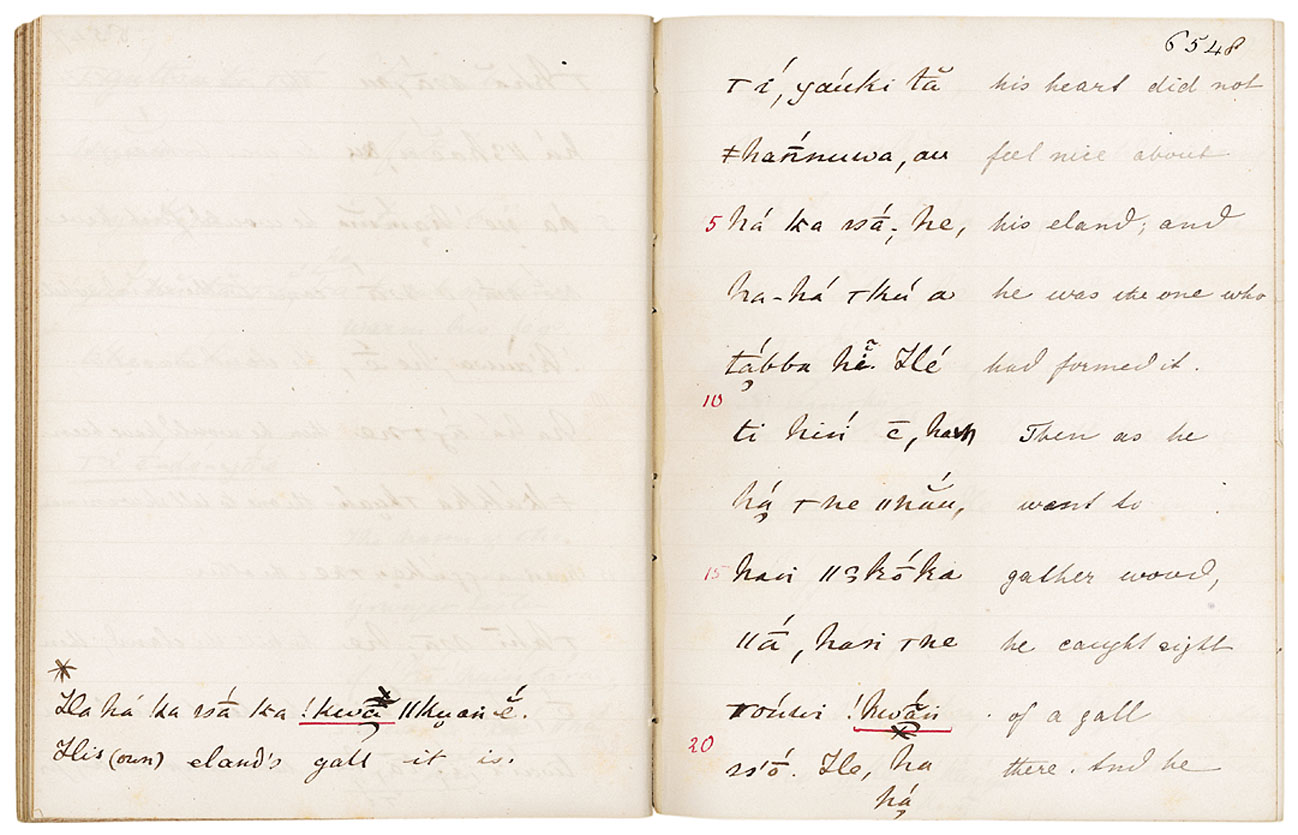 Ha há ka sā́ ka !kwā̰̆ ǁkṷan ĕ́.
His (own) eland's gall it is.
6548
ꞇ í, yáuki tă his heart did not
ǂhań̄nuwa, au feel nice about
5 há ka sā́; he, his eland; and
ha-há ꞇkú a he was the one who
tábba hĭ̃. Hé had formed it.
10
ti hiń ē, hań Then as he
há̰ ꞇne ǁnā̆́u, went to
15 hasi ǁɜkṓka gather wood,
ǁā́, hasi ꞇne he caught sight
!kwā̰̆́ń of a gall
20
ss'ō̄. He, ha there. And he
há̰